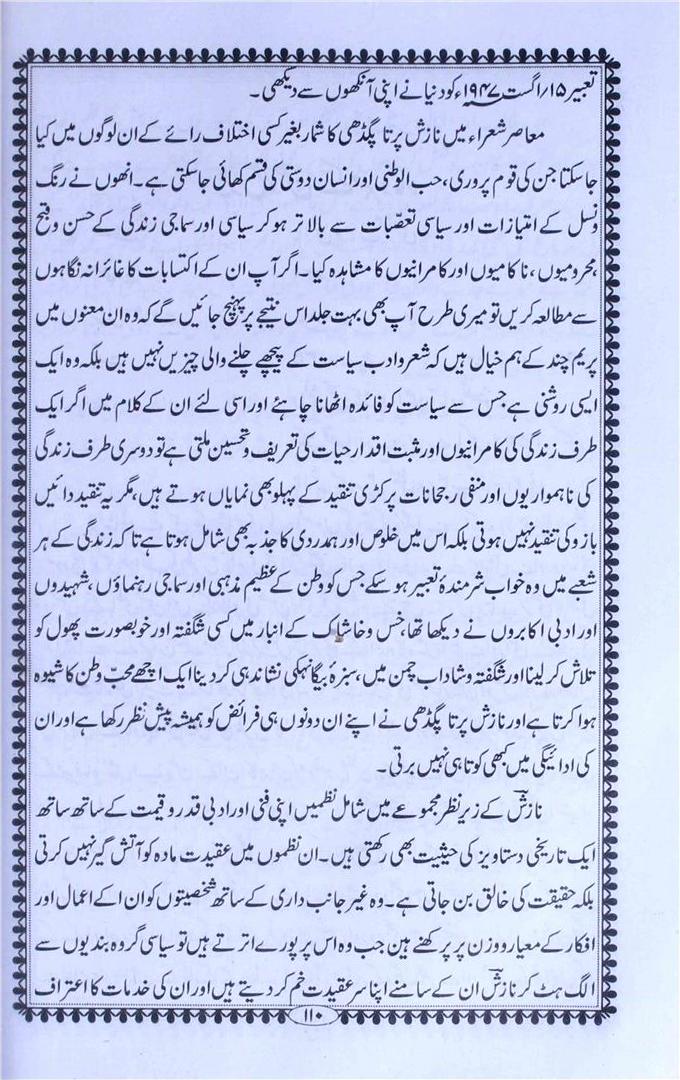 تعبیر ۱۵/اگست ۱۹۴۷ء کو دنیا نے اپنی آنکھوں سے دیکھی۔
معاصر شعراء میں نازش پرتاپگڈھی کا شمار بغیر کسی اختلاف رائے کے ان لوگوں میں کیا
جاسکتا جن کی قوم پروری، حب الوطنی اور انسان دوستی کی قسم کھائی جاسکتی ہے۔ انھوں نے رنگ
ونسل کے امتیازات اور سیاسی تعصّبات سے بالا تر ہوکر سیاسی اور سماجی زندگی کے حسن و قبح
،محرومیوں، ناکامیوں اور کامرانیوں کا مشاہدہ کیا۔ اگر آپ ان کے اکتسابات کا غائرانہ نگاہوں
سے مطالعہ کریں تو میری طرح آپ بھی بہت جلد اس نتیجے پر پہنچ جائیں گے کہ وہ ان معنوں میں
پریم چند کے ہم خیال ہیں کہ شعر و ادب سیاست کے پیچھے چلنے والی چیزیں نہیں ہیں بلکہ وہ ایک
ایسی روشنی ہے جس سے سیاست کو فائدہ اٹھانا چاہئے اور اسی لئے ان کے کلام میں اگر ایک
طرف زندگی کی کامرانیوں اور مثبت اقدار حیات کی تعریف و تحسین ملتی ہے تو دوسری طرف زندگی
کی ناہمواریوں اور منفی رجحانات پر کڑی تنقید کے پہلو بھی نمایاں ہوتے ہیں، مگر یہ تنقید دائیں
بازو کی تنقید نہیں ہوتی بلکہ اس میں خلوص اور ہمدردی کا جذبہ بھی شامل ہوتا ہے تا کہ زندگی کے ہر
شعبے میں وہ خواب شرمندۂ تعبیر ہو سکے جس کو وطن کے عظیم مذہبی اور سماجی رہنماؤں، شہیدوں
اور ادبی اکابروں نے دیکھا تھا، خس و خاشاک کے انبار میں کسی شگفتہ اور خوبصورت پھول کو
تلاش کر لینا اور شگفتہ و شاداب چمن میں، سبزۂ بیگانہ کی نشاندہی کر دینا ایک اچھے محبّ وطن کا شیوہ
ہوا کرتا ہے اور نازش پرتاپگڈھی نے اپنے ان دونوں ہی فرائض کو ہمیشہ پیش نظر رکھا ہے اور ان
کی ادائیگی میں کبھی کوتاہی نہیں برتی۔
نازش کے زیر نظر مجموعے میں شامل نظمیں اپنی فنی اور ادبی قدر و قیمت کے ساتھ ساتھ
ایک تاریخی دستاویز کی حیثیت بھی رکھتی ہیں۔ ان نظموں میں عقیدت مادہ کو آتش گیر نہیں کرتی
بلکہ حقیقت کی خالق بن جاتی ہے۔ وہ غیر جانب داری کے ساتھ شخصیتوں کو ان اکے اعمال اور
افکار کے معیار و وزن پر پرکھتے ہین جب وہ اس پر پورے اترتے ہیں تو سیاسی گروہ بندیوں سے
الگ ہٹ کر نازش ان کے سامنے اپنا سر عقیدت خم کر دیتے ہیں اور ان کی خدمات کا اعتراف
۱۱۰